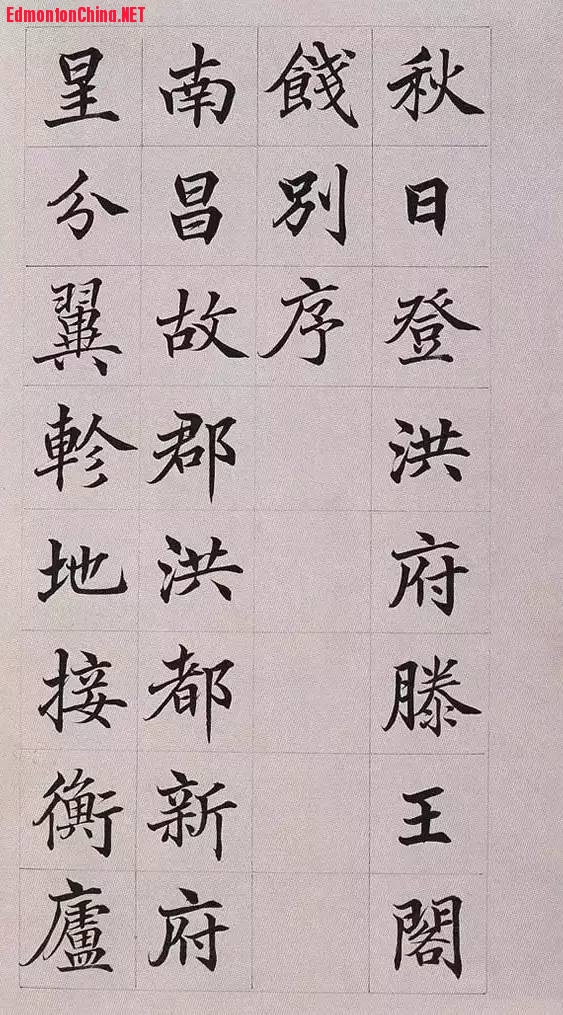 EdmontonChina.NET
秋日登洪府滕王閣
餞別序
南昌故郡洪都新府
星分翼軫地接衡廬